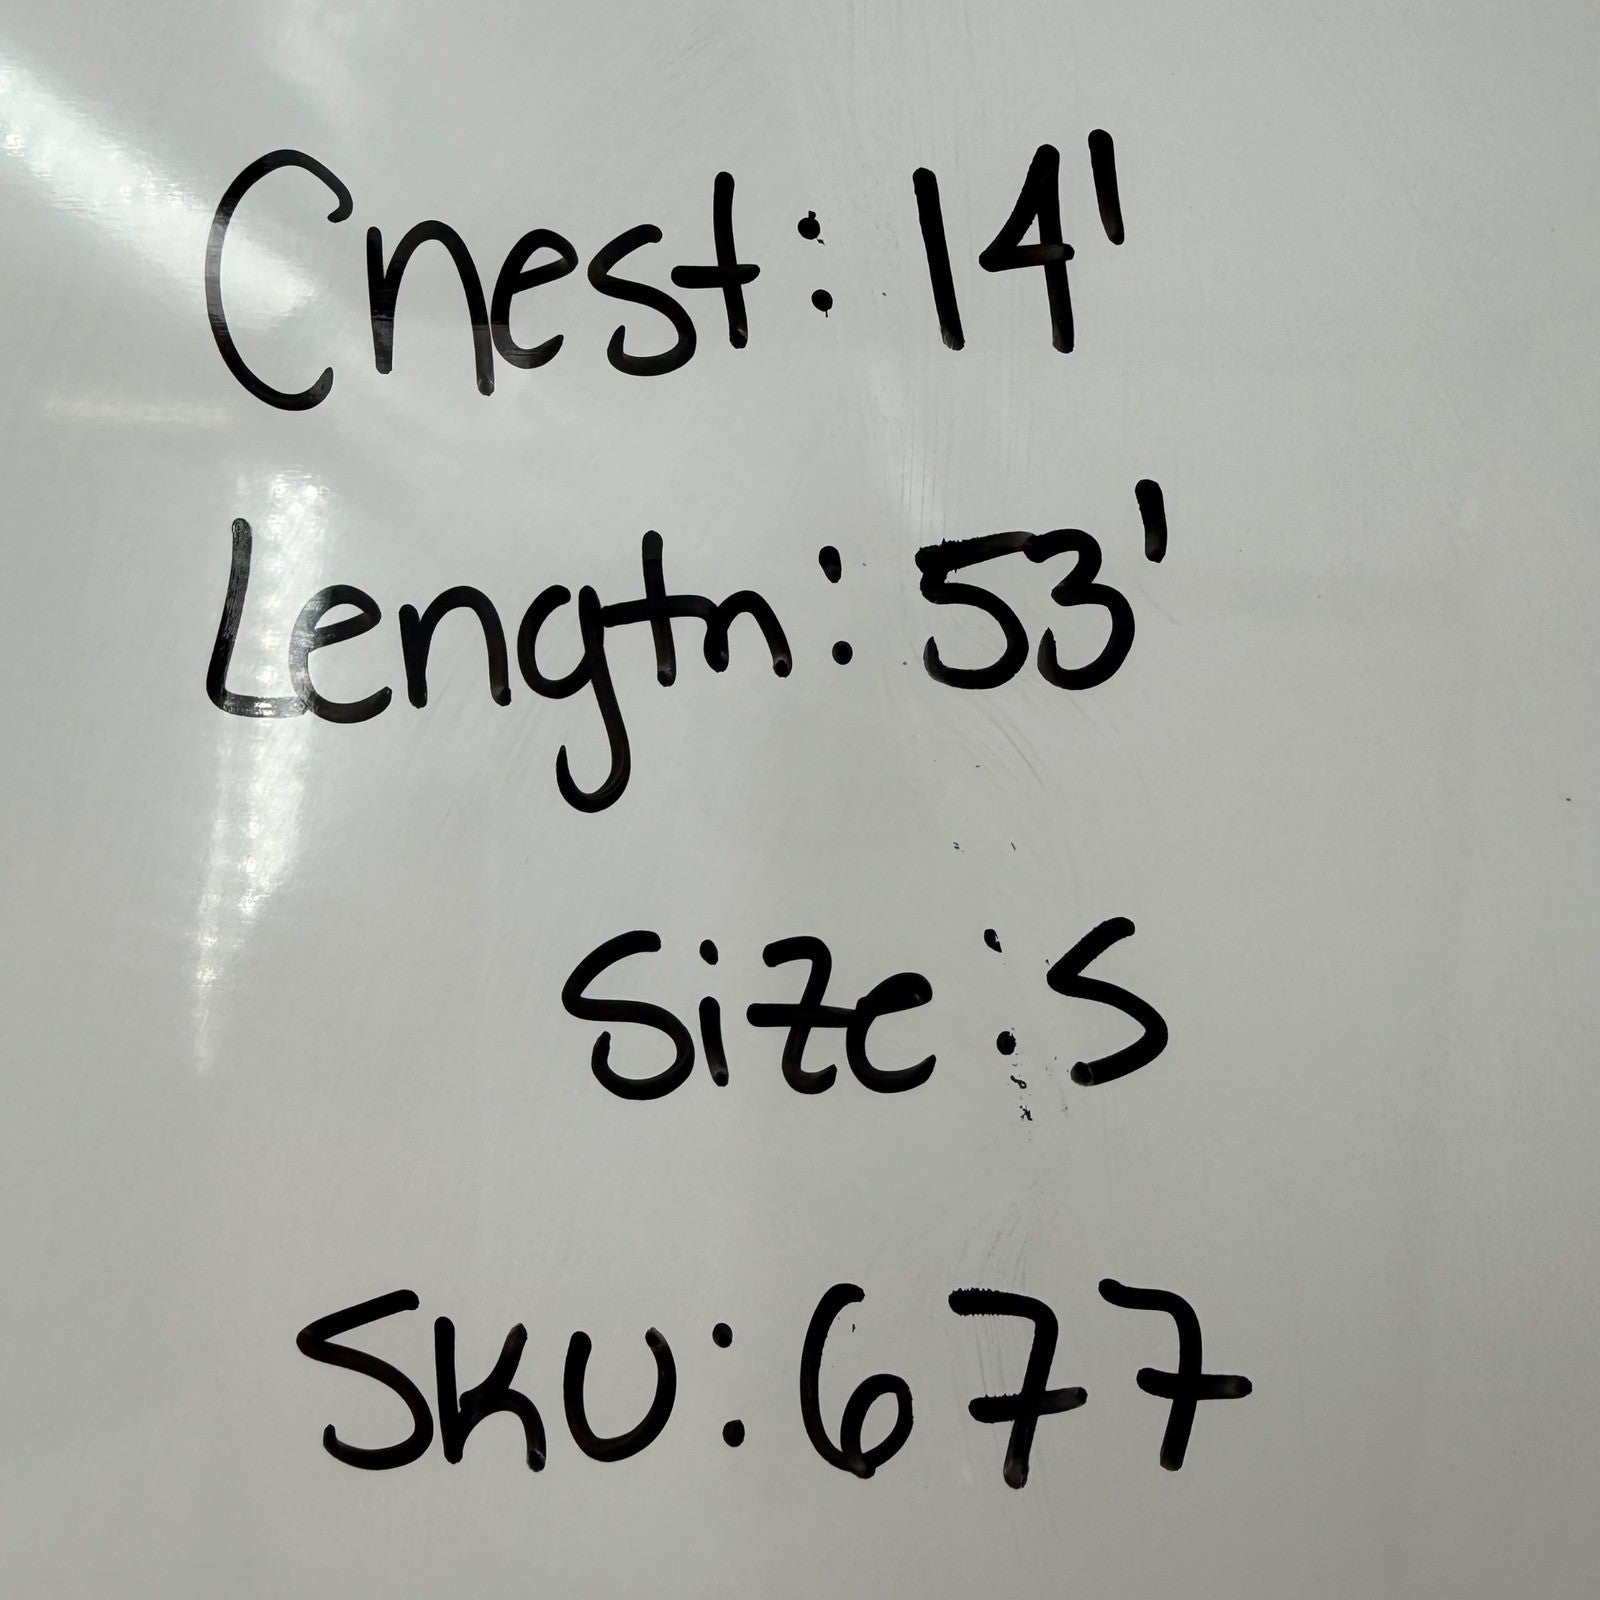 Chest: 14'
Length: 53'
Size: S
SKU: 677